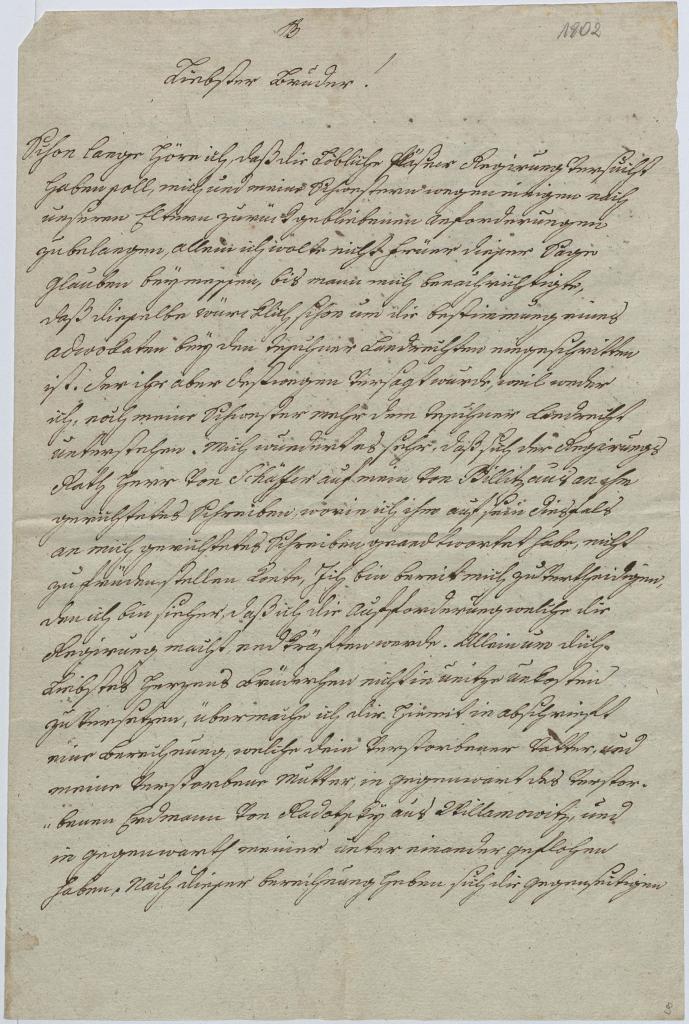 B
1802
Liebster Bruder!
Schon lange höre ich, daß die Löbliche Plesner Regirung versucht
haben soll, mich und meine Schwestern wegen einigen nach
unseren Eltern zurückgebliebenen Anforderungen
zubelangen, allein ich wolte nicht früher dieser Sage
glauben beymessen, bis mann mich benachrichtigte,
daß dieselbe würcklich schon um die bestimmung eines
advocaten bey den teschner Landrechten eingeschritten
ist. der ihr aber deswegen versagt wurde, weil weder
ich, noch meine Schwester mehr dem teschner Landrecht
unterstehen. Mich wundert es sehr, daß sich der Regirungs
Rath Herr von Schäffer auf mein von Billitz aus an ihn
gerichtetes Schreiben, worin ich ihm auf sein diesfals
an mich gerichtetes Schreiben geandtwortet habe, nicht
zufrüden stellen konte, Ich bin bereit mich zuvertheidigen,
den ich bin sicher, daß ich die Aufforderung welche die
Regirung macht, endkräften werde. Allein um dich
Liebstes Herzens Brüderchen nicht in unütze unkosten
zu versetzen, übermache ich dir hiemit in abschrieft
eine berechnung, welche dein verstorbener Vatter, und
meine verstorbene Mutter, in gegenwart des verstor-
benen Erdmann von Radotzky aus Willamowitz, und
in gegenwarth meiner unter einander geschlossen
haben. Nach dieser berechnung heben sich die gegenseitigen